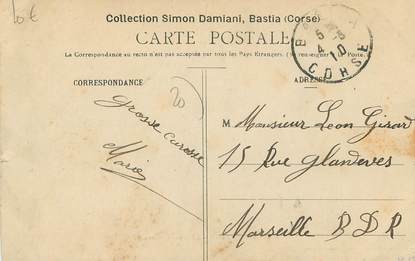 10 €
Collection Simon Damiani, Bastia (Corse)
CARTE POSTALE
La Correspondance au recto n'est pas acceptée par tous les Pays Etrangers. (Se renseigner à la Poste.)
CORRESPONDANCE
ADRESSE
5 -5
4 10
CORSE
20
Grosse caresse
Marie
M Monsieur Leon Girard
15 Rue Glandeves
Marseille B D R